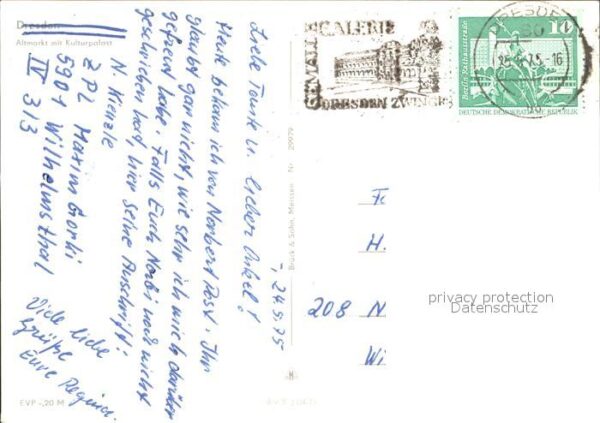 Dresden
Altmarkt mit Kulturpalast
GEMÄLDEGALERIE
DRESDEN ZWINGER
DRESDEN
14
Berlin, Rathausstraße
DEUTSCHE DEMOKRATISCHE REPUBLIK
, 24.5.75
Liebe Tante u. lieber Onkel!
Heute bekam ich von Norbert Post. Ihr
glaubt gar nicht, wie sehr ich mich darüber
gefreut habe. Falls Euch Norbi noch nicht
geschrieben hat, hier seine Anschrift:
N. Kienzle
ZPL Maxim Gorki
5901 Wilhelmsthal
IV 313
Viele liebe
Grüße
Eure Regina.
Druck & Sohn, Meissen Nr. 29979
F
H.
208 N
Wi
privacy protection
Datenschutz
EVP -,20 M